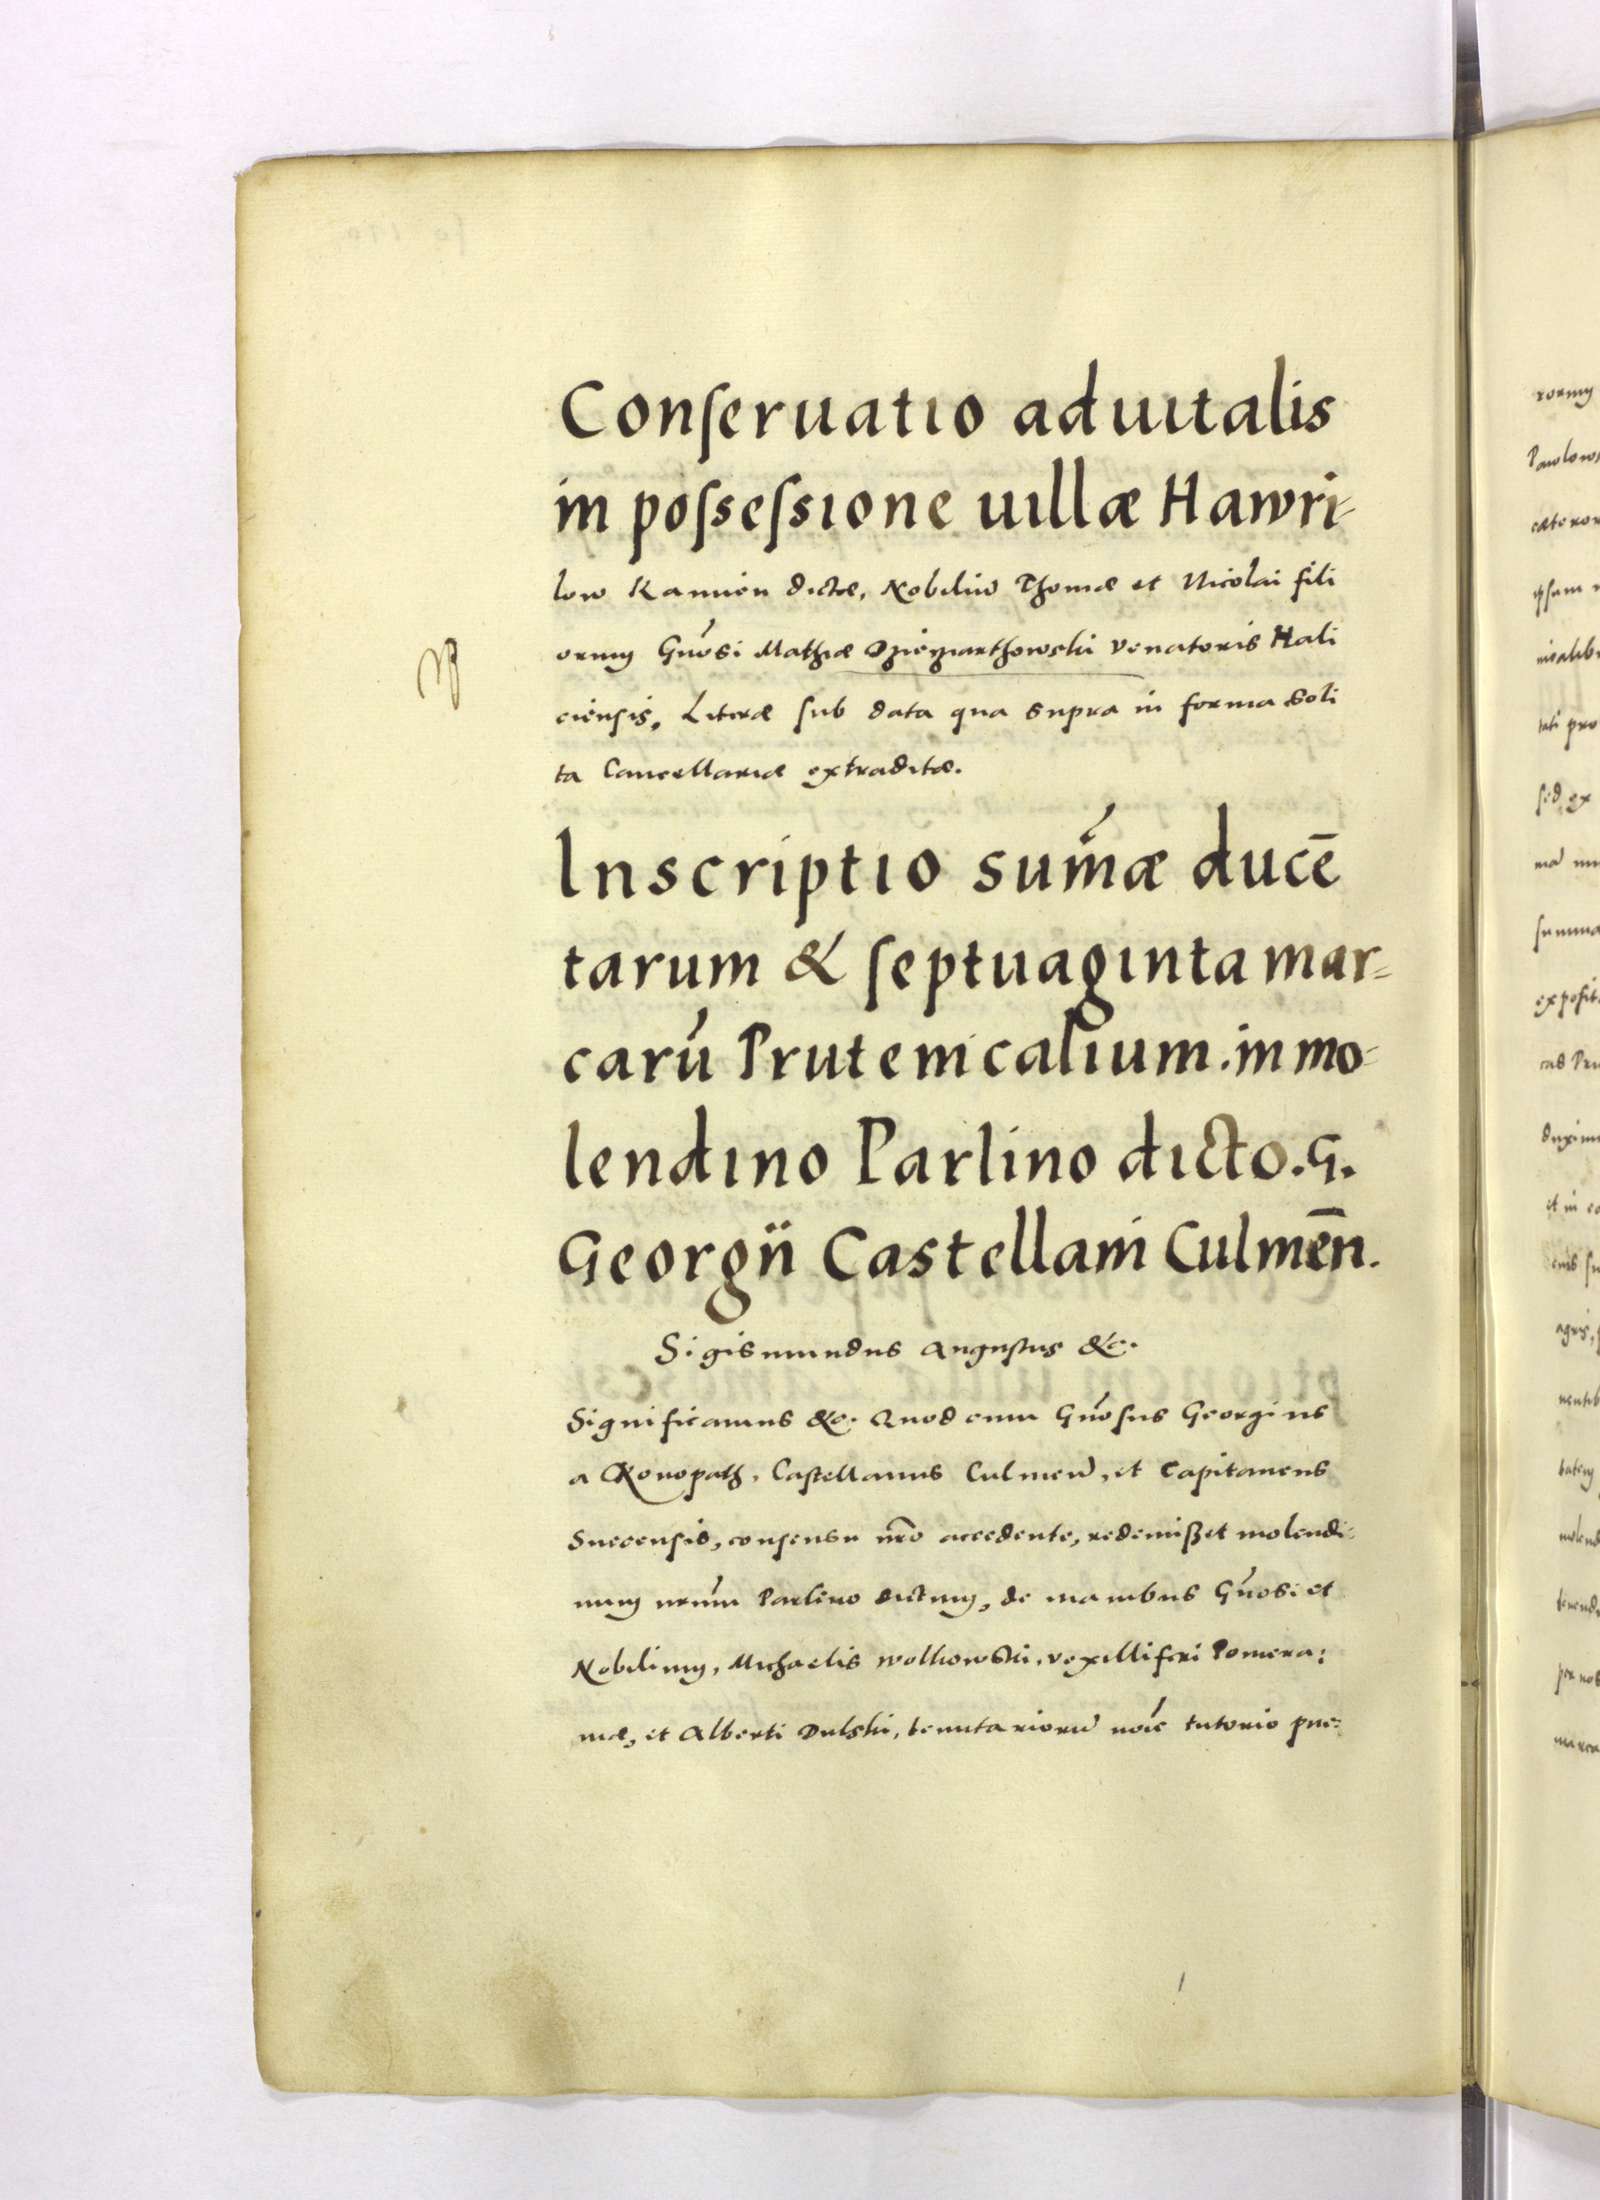 Conseruatio aduitalis
in possessione uillæ Hawri-
low Kamien dictæ, Nobiliũ Thomæ et Nicolai fili
orum Gñosi Mathiæ Dzieziarthowski Venatoris Hali
ciensis. Literæ sub data qua supra in forma soli
ta Cancellariæ extraditæ.
Inscriptio sum̃æ ducē
tarum & septuaginta mar=
carũ Prutenicalium. in mo=
lendino Parlino dicto. G.
Georgii Castellani Culmen̄.
Sigismundus Augustus &c.
Significamus &c. Quod cum Gñosus Georgius
a Konopath, Castellanus Culmeñ, et Capitaneus
Suecensis, consensu nr̃o accedente, redemißet molendi=
num nr̃um Parlino dictum, de manibus Gñosi et
Nobilium, Michaelis wolkowski, vexilliferi Pomera:
niæ, et Alberti Dulski, tenutarioru̅ noi̅e tutorio pue:
rorum
Pawlows
cæteror
ipsum
sed, ex
summa
exposit
cas Pru
duximu
et in
agris,
molend
per nos
marca